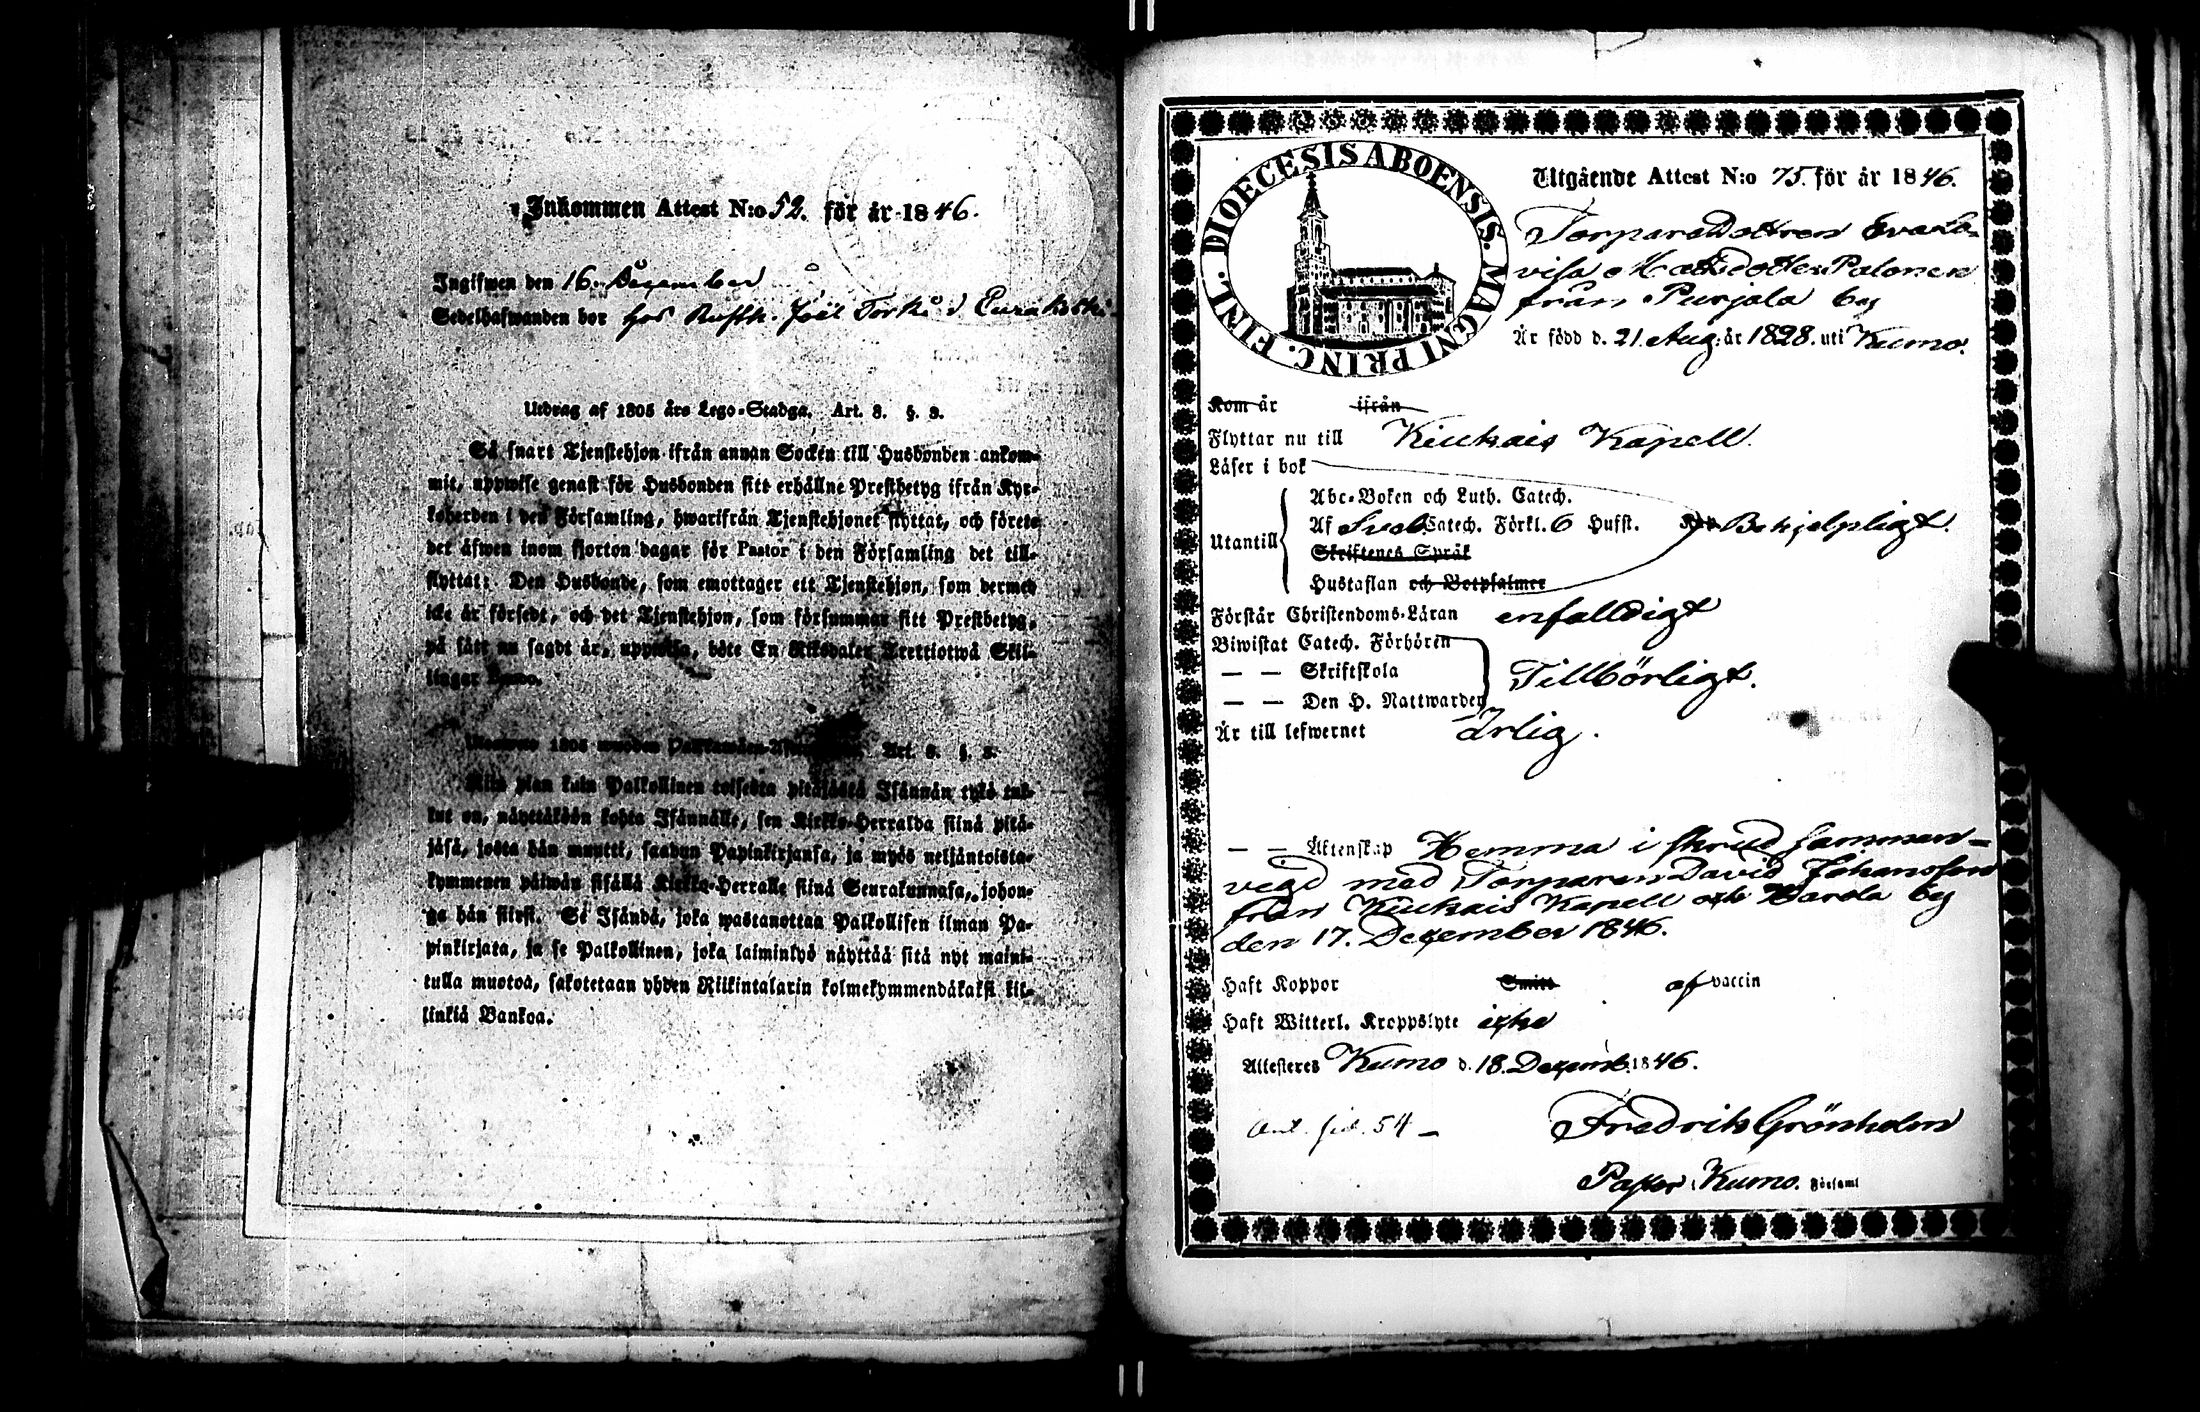 Inkommen Attest N:o 52. för år 1846.
Ingifwen den 16. Dezember
Sedelhafwanden bor hos Rusth. Joël Torki i Eurakoski
Utdrag af 1805 års Lego-Stadga. Art. 8. §. 3.
Så snart Tjenstehjon ifrån annan Socken till Husbonden ankom-
mit, uppwise genast för Husbonden sitt erhållne Prestbetyg ifrån Kyr-
koherden i den Församling, hwarifrån Tjenstehjonet flyttat, och förete
det äfwen inom fjorton dagar för Pastor i den Församling det till-
flyttat: Den Husbonde, som emottager ett Tjenstehjon, som dermed
icke är försedt, och det Tjenstehjon, som försummar sitt Prestbetyg,
på sätt nu sagdt är, uppwisa, böte En Riksdaler Trettiotwå Skil-
lingar Banko.
1805 wuoden Art. 8. §. 3.
Niin pian kuin Palkollinen toisesta pitäjästä Isännän tykö tul-
lut on, näyttäköön kohta Isännälle, sen Kirkko-Herralda siinä pitä-
jäsä, josta hän muutti, saadun Papinkirjansa, ja myös neljäntoista-
kymmenen päiwän sisällä Kirkko-Herralle siinä Seurakunnasa, johon-
ga hän siirsi. Se Isändä, joka wastanottaa Palkollisen ilman Pa-
pinkirjata, ja se Palkollinen, joka laiminlyö näyttää sitä nyt maini-
tulla muotoa, sakotetaan yhden Riikintalarin kolmekymmendäkaksi kil-
linkiä Bankoa.
DIOECESIS ABOENSIS. MAGNI PRINC. FINL.
Utgående Attest N:o 75. för år 1846.
Torpare Dottren Eva Lo-
visa Matsdotter Palonen
från Purjala by
Är född d. 21. Aug: år 1828. uti Kumo.
Kom år ifrån
Flyttar nu till Kiukais Kapell.
Läser i bok
Abc-Boken och Luth. Catech.
Utantill Af Sveb. Catech. Förkl. 6 Hufst. Behjelpligt.
Skriftenes Språk
Hustaflan och Botpsalmer
Förstår Christendoms-Läran enfalldigt
Biwistat Catech. Förhören
— — Skriftskola Tillbörligt.
— — Den H. Nattwarden
Är till lefwernet Ärlig.
— — Äktenskap Hemma i skrud samman-
vigd med Torparen David Johansson
från Kiukais Kapell och Harola by
den 17. Dezember 1846.
Haft Koppor Smitt af vaccin
Haft Witterl. Kroppslyte icke
Attesteres Kumo d. 18. Dezemb. 1846.
Ant. sid. 54 –
Fredrik Grönholm
Pastor i Kumo. Församl